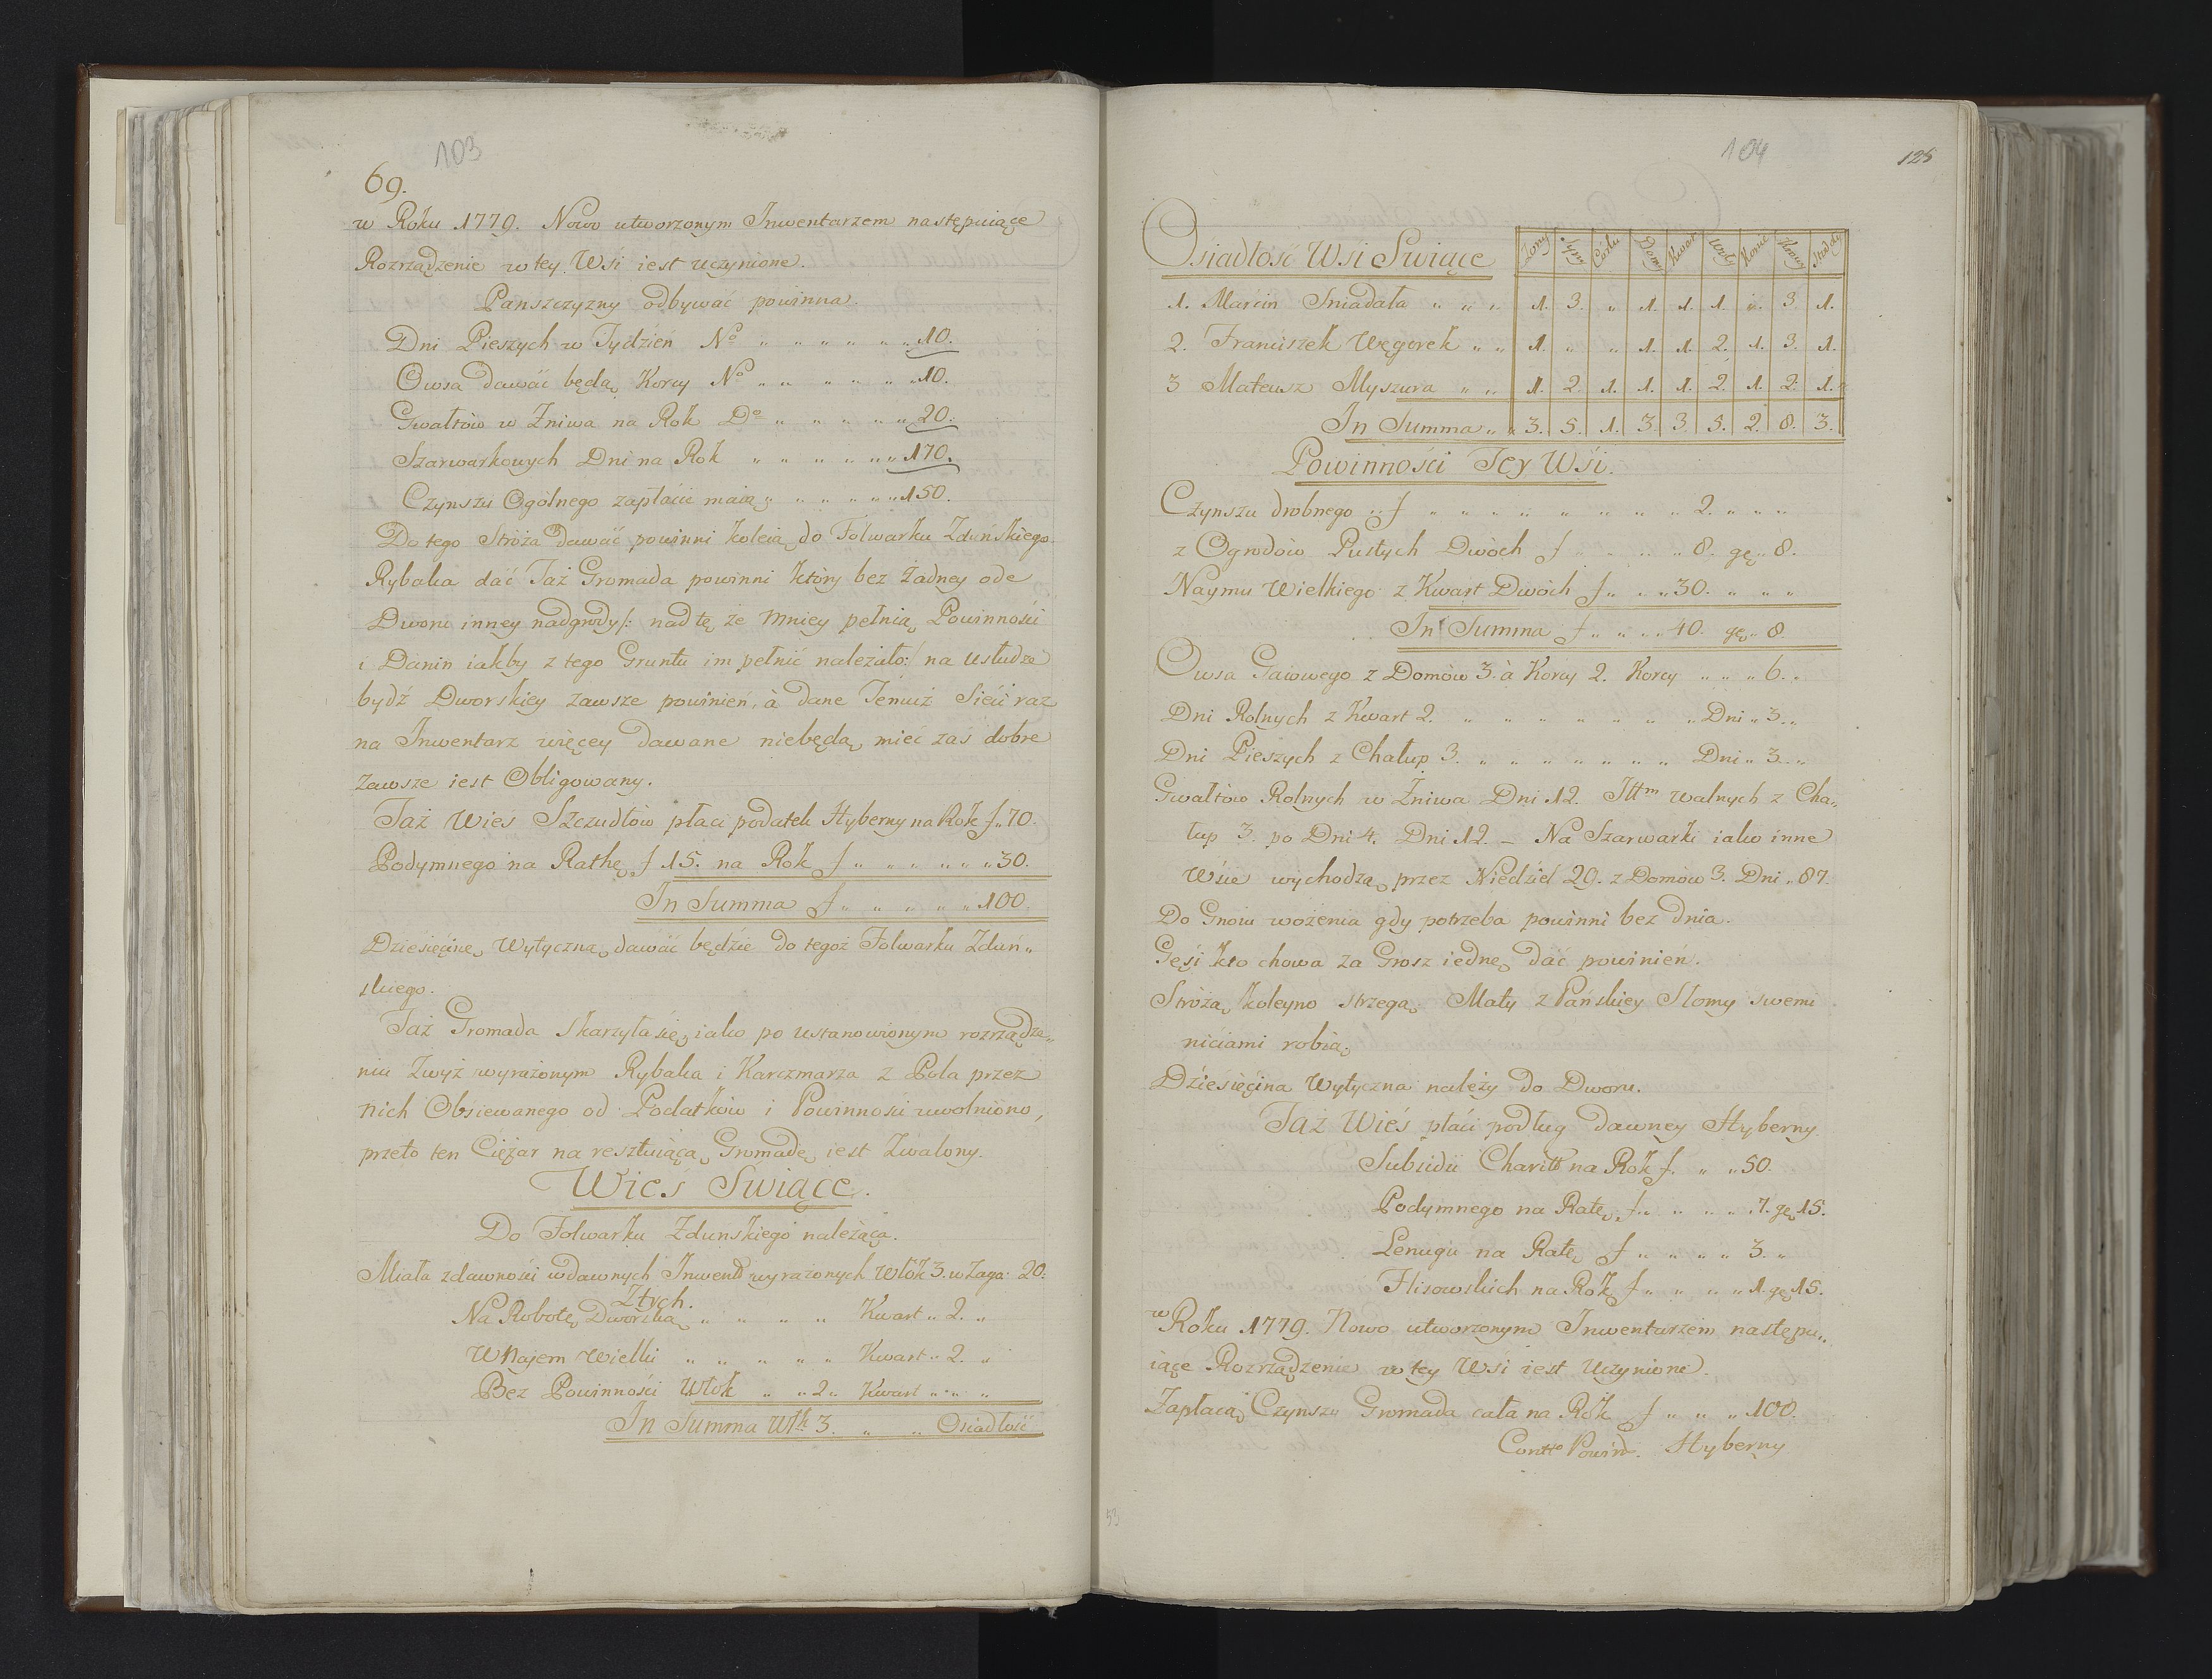 103
69.
w Roku 1779. Nowo utworzonym Inwentarzem następuiące
Rozrządzenie w tey Wsi iest uczynione.
Panszczyzny odbywać powinna.
Dni Pieszych w Tydzień No „ „ „ „ „ „ 10.
Owsa dawać będą Korcy No „ „ „ „ „ „ 10.
Gwałtow w Zniwa na Rok Do „ „ „ „ „ 20.
Szarwarkowych Dni na Rok „ „ „ „ „ „ 170.
Czynszu Ogolnego zapłacić maią „ „ „ „ „ 150.
Do tego Stroża dawać powinni koleią do Folwarku Zduńskiego
Rybaka dać Taż Gromada powinni ktory bez żadney ode
Dworu inney nadgrody /: nad tę że mniey pełnią Powinności
i Danin iakby z tego Gruntu im pełnić należało :/ na usłudze
bydź Dworskiey zawsze powinien, à dane Temuż Sieci raz
na Inwentarz więcey dawane niebędą mieć zaś dobre
zawsze iest Obligowany.
Taż Wies Szczudłow płaci podatek Hyberny na Rok f „ 70.
Podymnego na Rathę f 15. na Rok f „ „ „ „ „ 30.
In Summa f „ „ „ „ „ 100.
Dziesięcinę Wytyczną dawać będzie do tegoż Folwarku Zduń„
skiego.
Taż Gromada skarżyła się, iako po ustanowionym rozrządze„
niu Zwyż wyrażonym Rybaka i Karczmarza z Pola przez
nich Obsiewanego od Podatkow i Powinnosci uwolniono,
przeto ten Ciężar na resztuiącą Gromadę iest Zwalony.
Wieś Świące.
Do Folwarku Zdunskiego należąca.
Miała zdawności wdawnych Inwent wyrazonych Włok 3. w Zaga: 20:
Ztych.
Na Robotę Dworską „ „ „ „ Kwart „ 2. „
W Najem Wielki „ „ „ „ „ Kwart „ 2. „
Bez Powinności Włok „ „ 2 „ Kwart „ „ „
In Summa Włk 3. „ „ Osiadłość
104
125
Osiadłość Wsi Swiące Zony Syny Corki Domy Kwart Woły Konie Krowy Stodoły
1. Marcin Sniadała „ „ „ 1. 3. „ 1. 1. 1. „ 3. 1.
2. Franciszek Węgorek „ „ 1. „ „ 1. 1. 2. 1. 3. 1.
3 Mateusz Myszura „ „ 1. 2. 1. 1. 1. 2. 1. 2. 1.
In Summa „ „ 3. 5. 1. 3. 3. 5. 2. 8. 3.
Powinności Tey Wsi.
Czynszu drobnego „ f „ „ „ „ „ „ „ „ 2. „ „ „
z Ogrodow Pustych Dwoch f „ „ „ „ 8. gę „ 8.
Naymu Wielkiego z Kwart Dwoch f „ „ „ 30. „ „ „
In Summa f „ „ „ „ 40. gę „ 8.
Owsa Gaiowego z Domow 3. à Korcy 2. Korcy „ „ „ 6. „
Dni Rolnych z Kwart 2. „ „ „ „ „ „ „ Dni „ 3. „
Dni Pieszych z Chałup 3. „ „ „ „ „ „ „ Dni „ 3. „
Gwałtow Rolnych w Żniwa Dni 12. Ittm walnych z Cha„
łup 3. po Dni 4. Dni 12. – Na Szarwarki iako inne
Wsie wychodzą przez Niedziel 29. z Domow 3. Dni „ 87.
Do Gnoiu wożenia gdy potrzeba powinni bez dnia.
Gęsi kto chowa za Grosz iednę dać powinien.
Strożą koleyno strzegą. Maty z Pańskiey Słomy swemi
niciami robią.
Dziesięcina Wytyczna należy do Dworu.
Taż Wieś płaci podług dawney Hyberny
Subsidii Charitt na Rok f. „ „ 50.
Podymnego na Ratę f „ „ „ „ „ 7. gę 15.
Lenugu na Ratę f „ „ „ „ 3. „
Flisowskich na Rok f „ „ „ „ 1. gę 15.
w Roku 1779. Nowo utworzonym Inwentarzem następu„
iące Rozrządzenie w tey Wsi iest Uczynione.
Zapłacą Czynszu Gromada cała na Rok f „ „ „ 100.
Hyberny
53